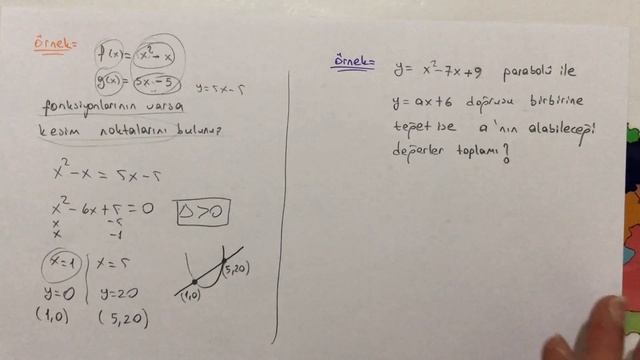 Örnek=
f(x) = x² - x
g(x) = 5x - 5
y = 5x - 5
fonksiyonlarının varsa
kesim noktalarını bulunuz
x² - x = 5x - 5
x² - 6x + 5 = 0
Δ > 0
x -5
x -1
x = 1 x = 5
y = 0 y = 20
(1,0) (5,20)
(5,20)
(1,0)
Örnek=
y = x² - 7x + 9 parabolü ile
y = ax + 6 doğrusu birbirine
teğet ise a'nın alabileceği
değerler toplamı?